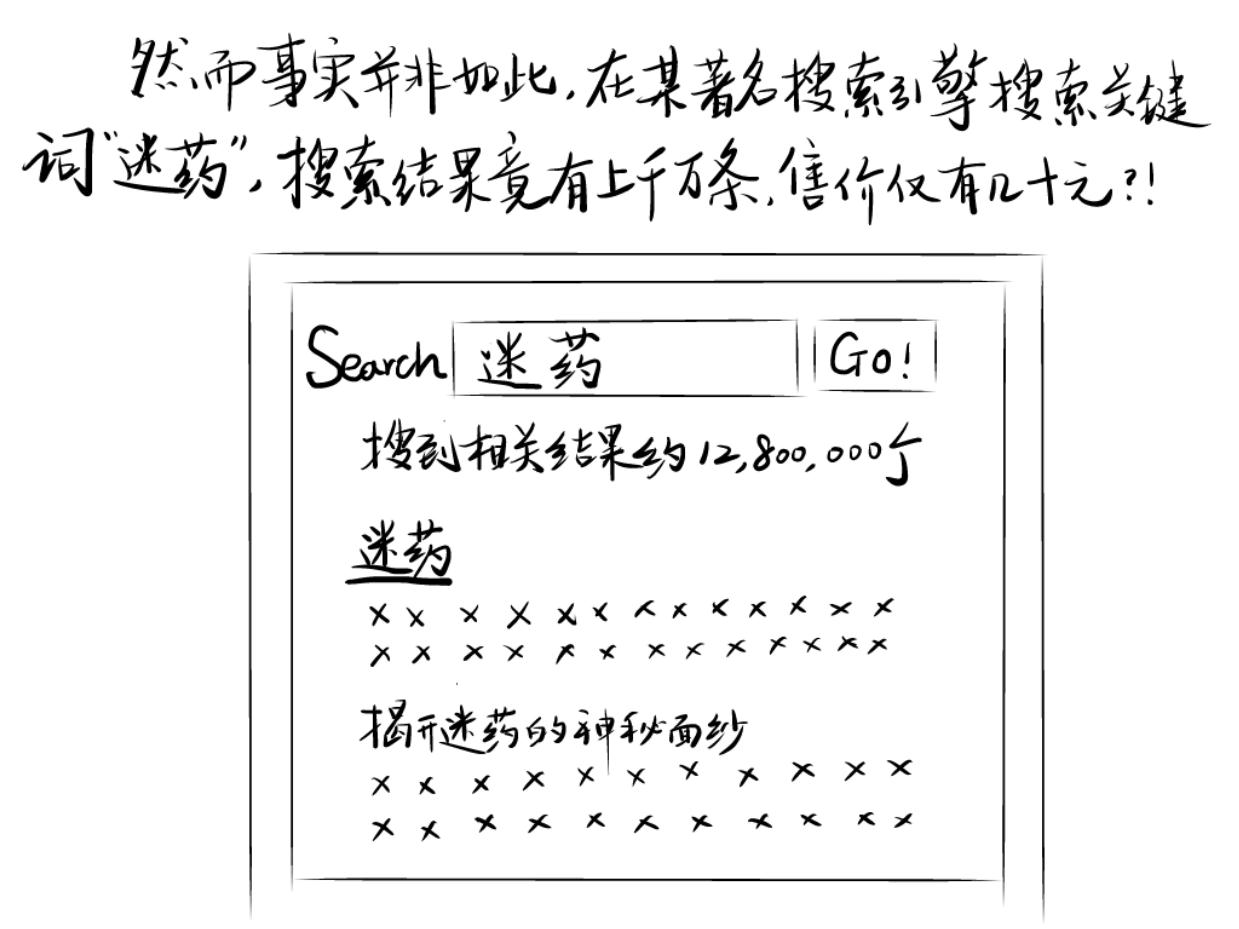 然而事实并非如此,在某著名搜索引擎搜索关键
词"迷药",搜索结果竟有上千万条,售价仅有几十元?!
Search 迷药 Go!
搜到相关结果约12,800,000个
迷药
×××××××××××××
×××××××××××××
揭开迷药的神秘面纱
×××××××××××
×××××××××××